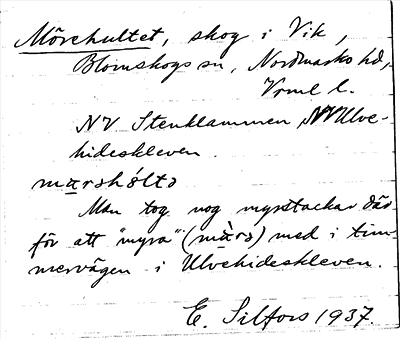 Mörehultet, skog i Vik,
Blomskogs sn, Nordmarks hd,
Vrml l.
NV Stenklammen, NV Ulve-
hideskleven.
mär̥shól̥tə
Man tog nog myrstackar där
för att "myra" (mä̀rə) med i tim-
mervägen i Ulvehideskleven.
E. Silfors 1937.